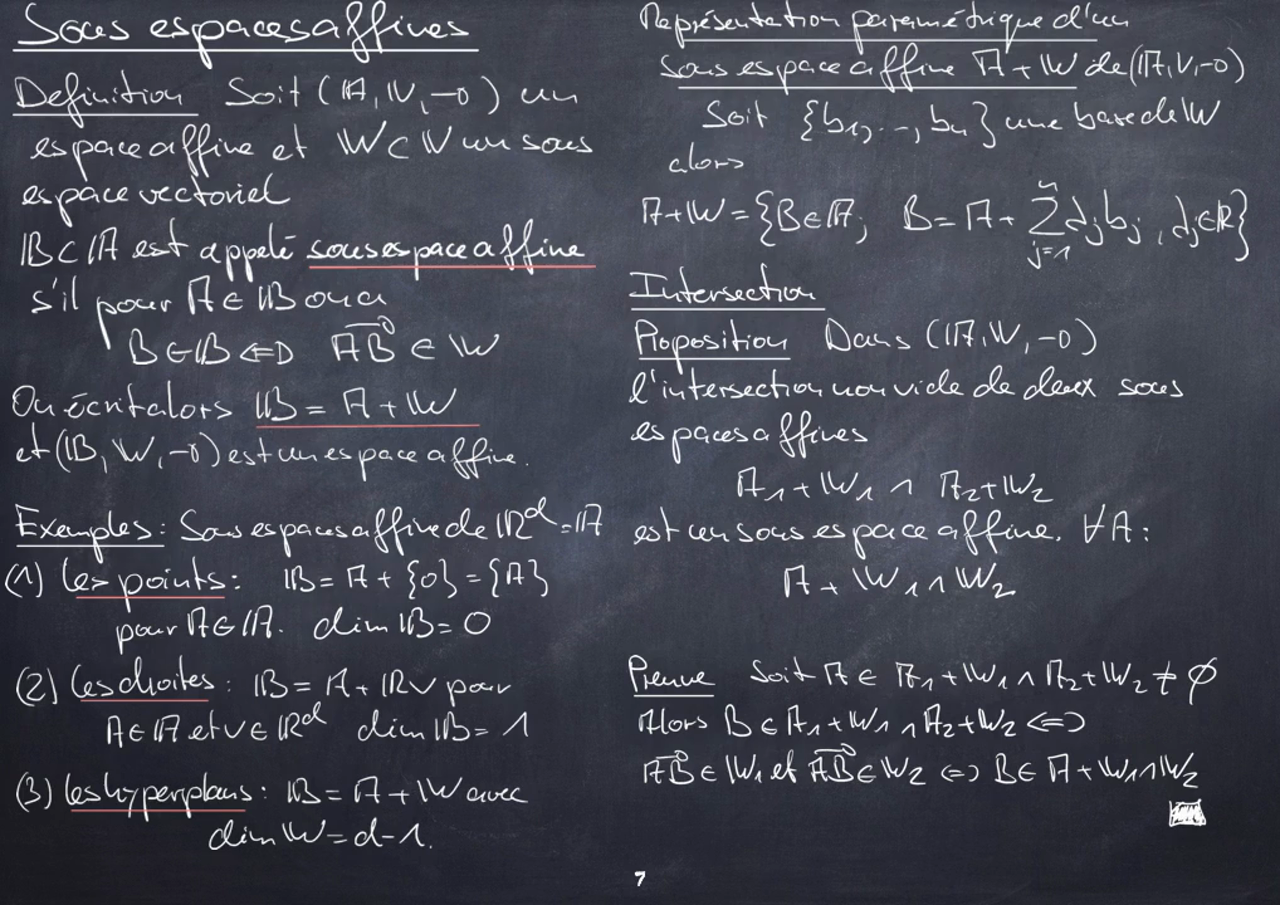 Sous espaces affines
Definition Soit (𝔸, 𝕍, →) un
espace affine et 𝕎 ⊂ 𝕍 un sous
espace vectoriel
𝔹 ⊂ 𝔸 est appelé sous espace affine
s'il pour A ∈ 𝔹 on a
B ∈ 𝔹 ⇔ \overrightarrow{AB} ∈ 𝕎
On écrit alors 𝔹 = A + 𝕎
et (𝔹, 𝕎, →) est un espace affine.
Exemples : Sous espaces affine de ℝ^d = 𝔸
(1) Les points : 𝔹 = A + {0} = {A}
pour A ∈ 𝔸. dim 𝔹 = 0
(2) Les droites : 𝔹 = A + ℝv pour
A ∈ 𝔸 et v ∈ ℝ^d dim 𝔹 = 1
(3) les hyperplans : 𝔹 = A + 𝕎 avec
dim 𝕎 = d-1.
Représentation paramétrique d'un
sous espace affine A + 𝕎 de (𝔸, V, →)
Soit {b₁, .., bₙ} une base de 𝕎
alors
A + 𝕎 = {B ∈ 𝔸; B = A + ∑_{j=1}^{n} λⱼbⱼ, λⱼ ∈ ℝ}
Intersection
Proposition Dans (𝔸, 𝕍, →)
l'intersection non vide de deux sous
espaces affines
A₁ + 𝕎₁ ∩ A₂ + 𝕎₂
est un sous espace affine. ∀A :
A + 𝕎₁ ∩ 𝕎₂
Preuve Soit A ∈ A₁ + 𝕎₁ ∩ A₂ + 𝕎₂ ≠ ∅
Alors B ∈ A₁ + 𝕎₁ ∩ A₂ + 𝕎₂ ⇔
\overrightarrow{AB} ∈ 𝕎₁ et \overrightarrow{AB} ∈ 𝕎₂ ⇔ B ∈ A + 𝕎₁ ∩ 𝕎₂
7